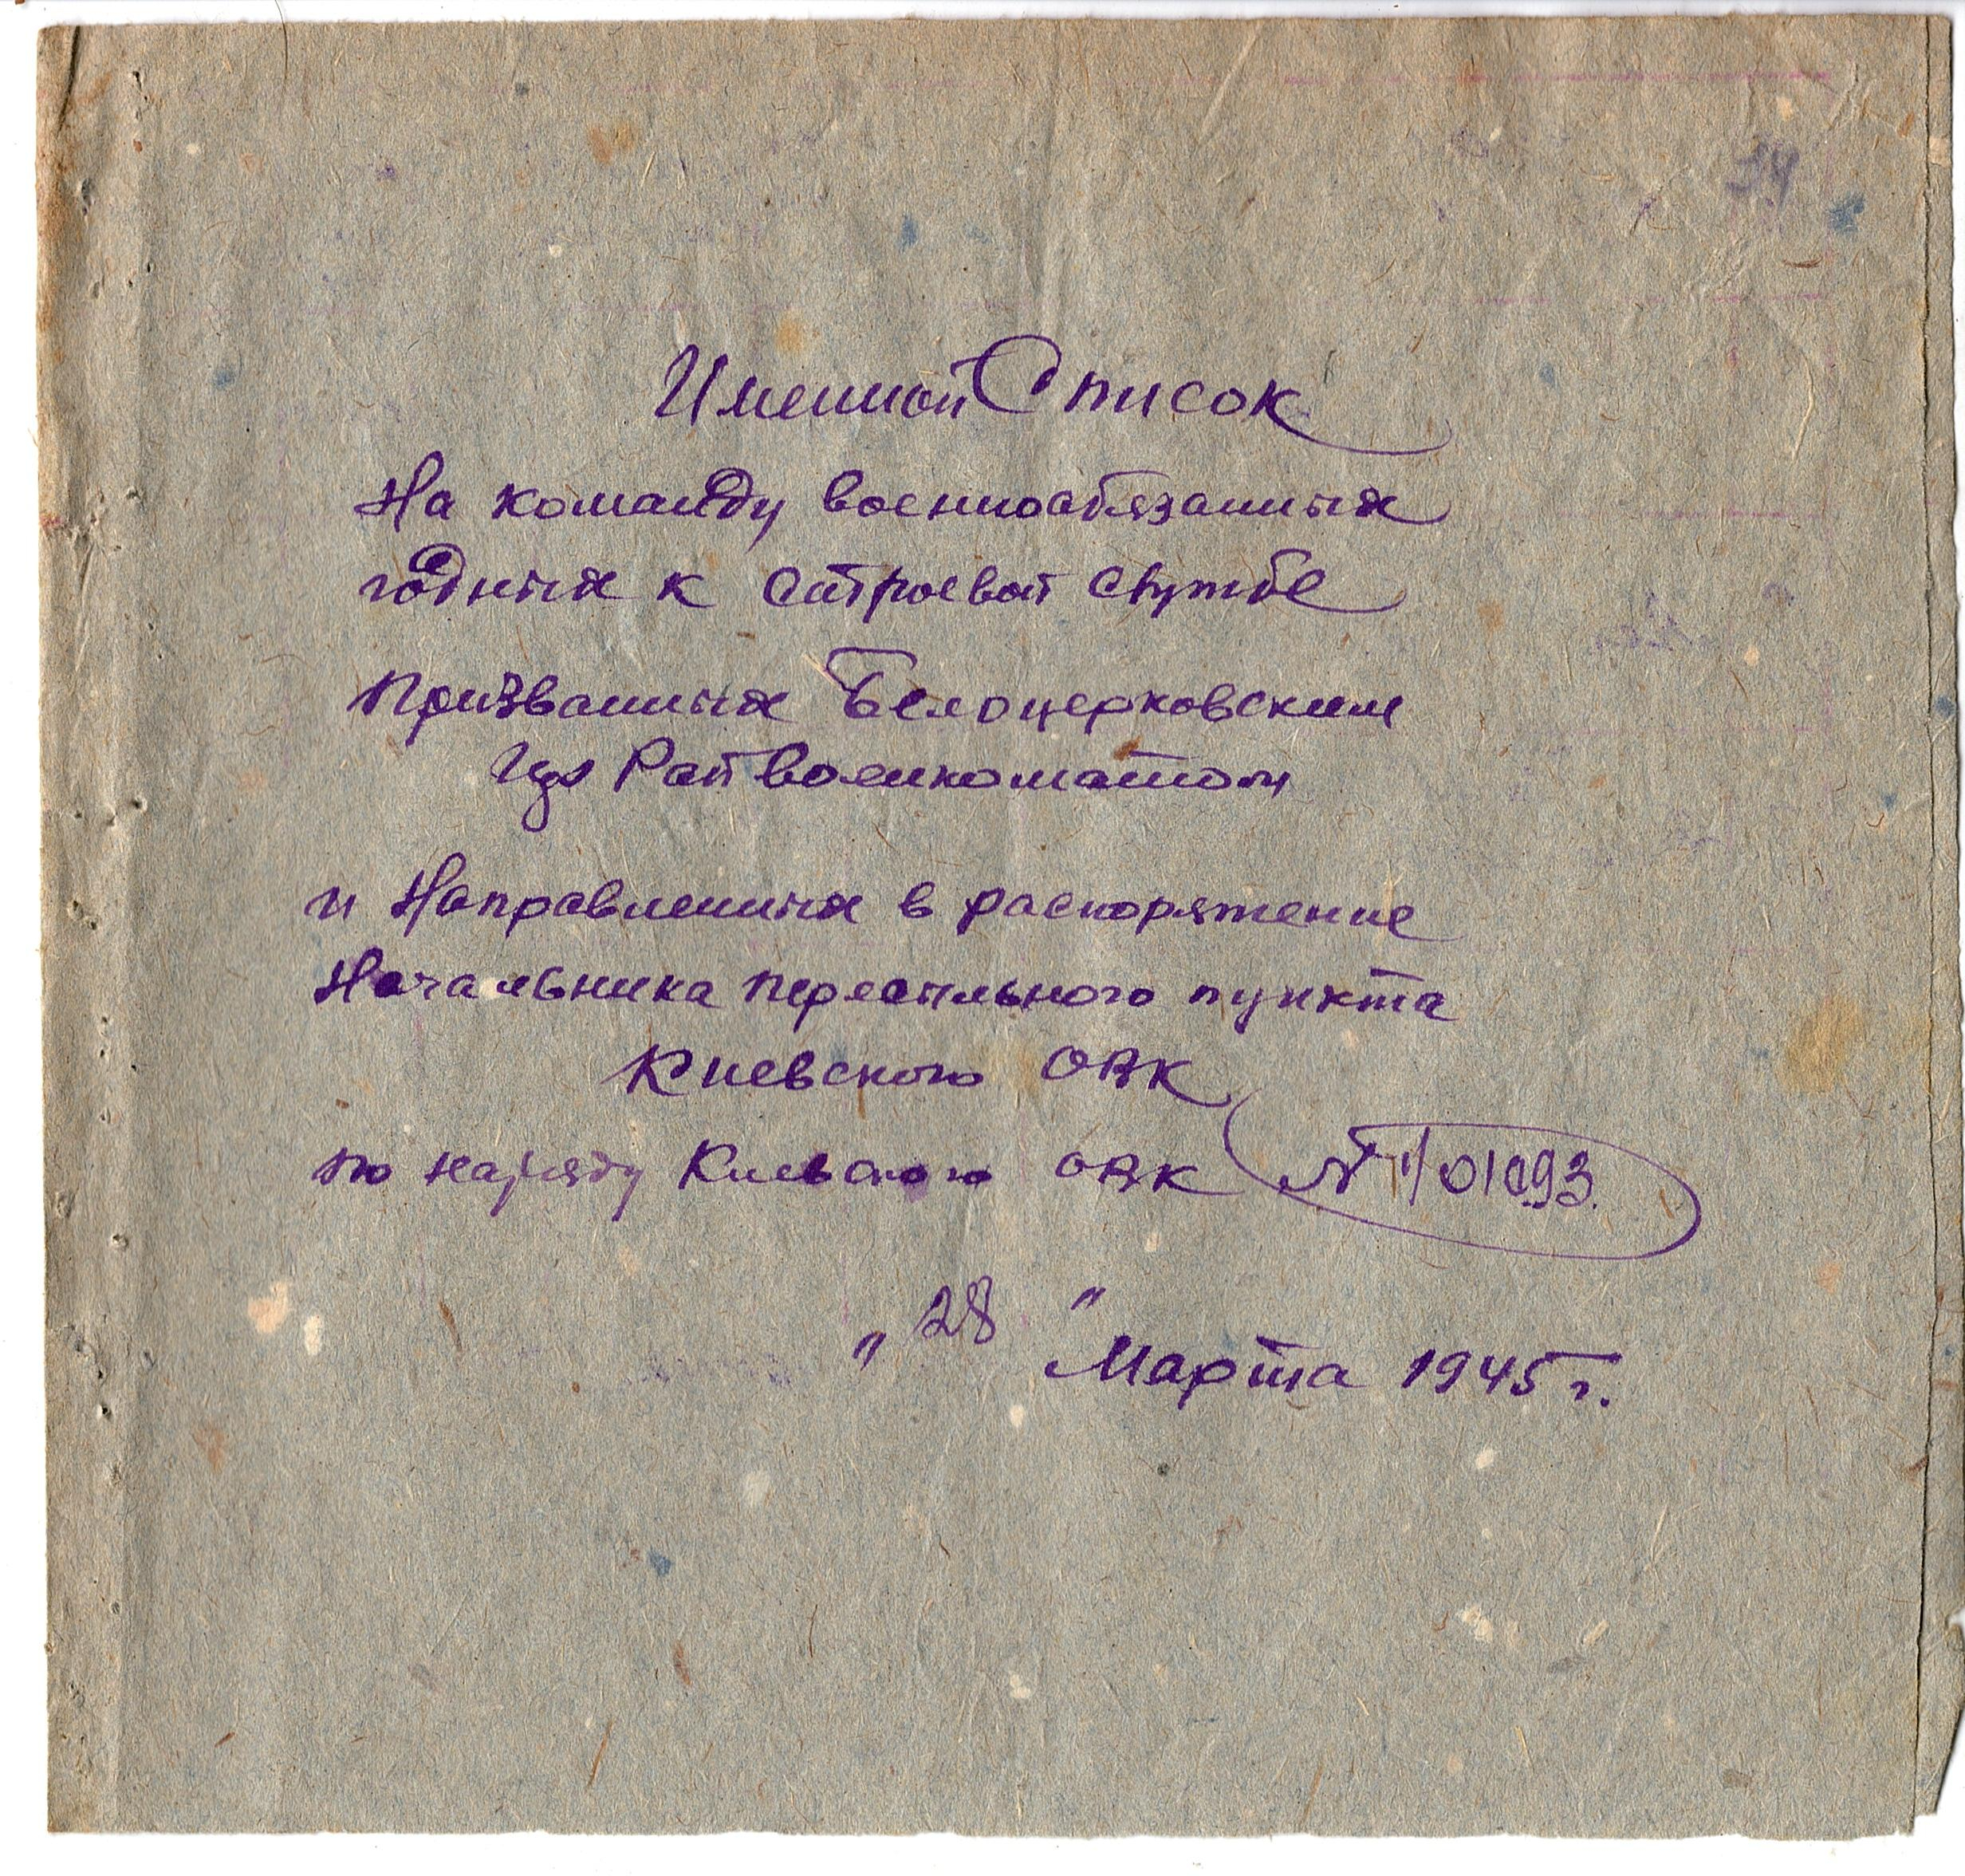 Именной Список
На команду военнообязанных
годных к строевой службе
Призванных Белоцерковским
Райвоенкоматом
и Направленных в распоряжение
Начальника пересыльного пункта
Киевского ОВК
по наряду Киевского ОВК № 1/01093.
"28"
Марта 1945 г.